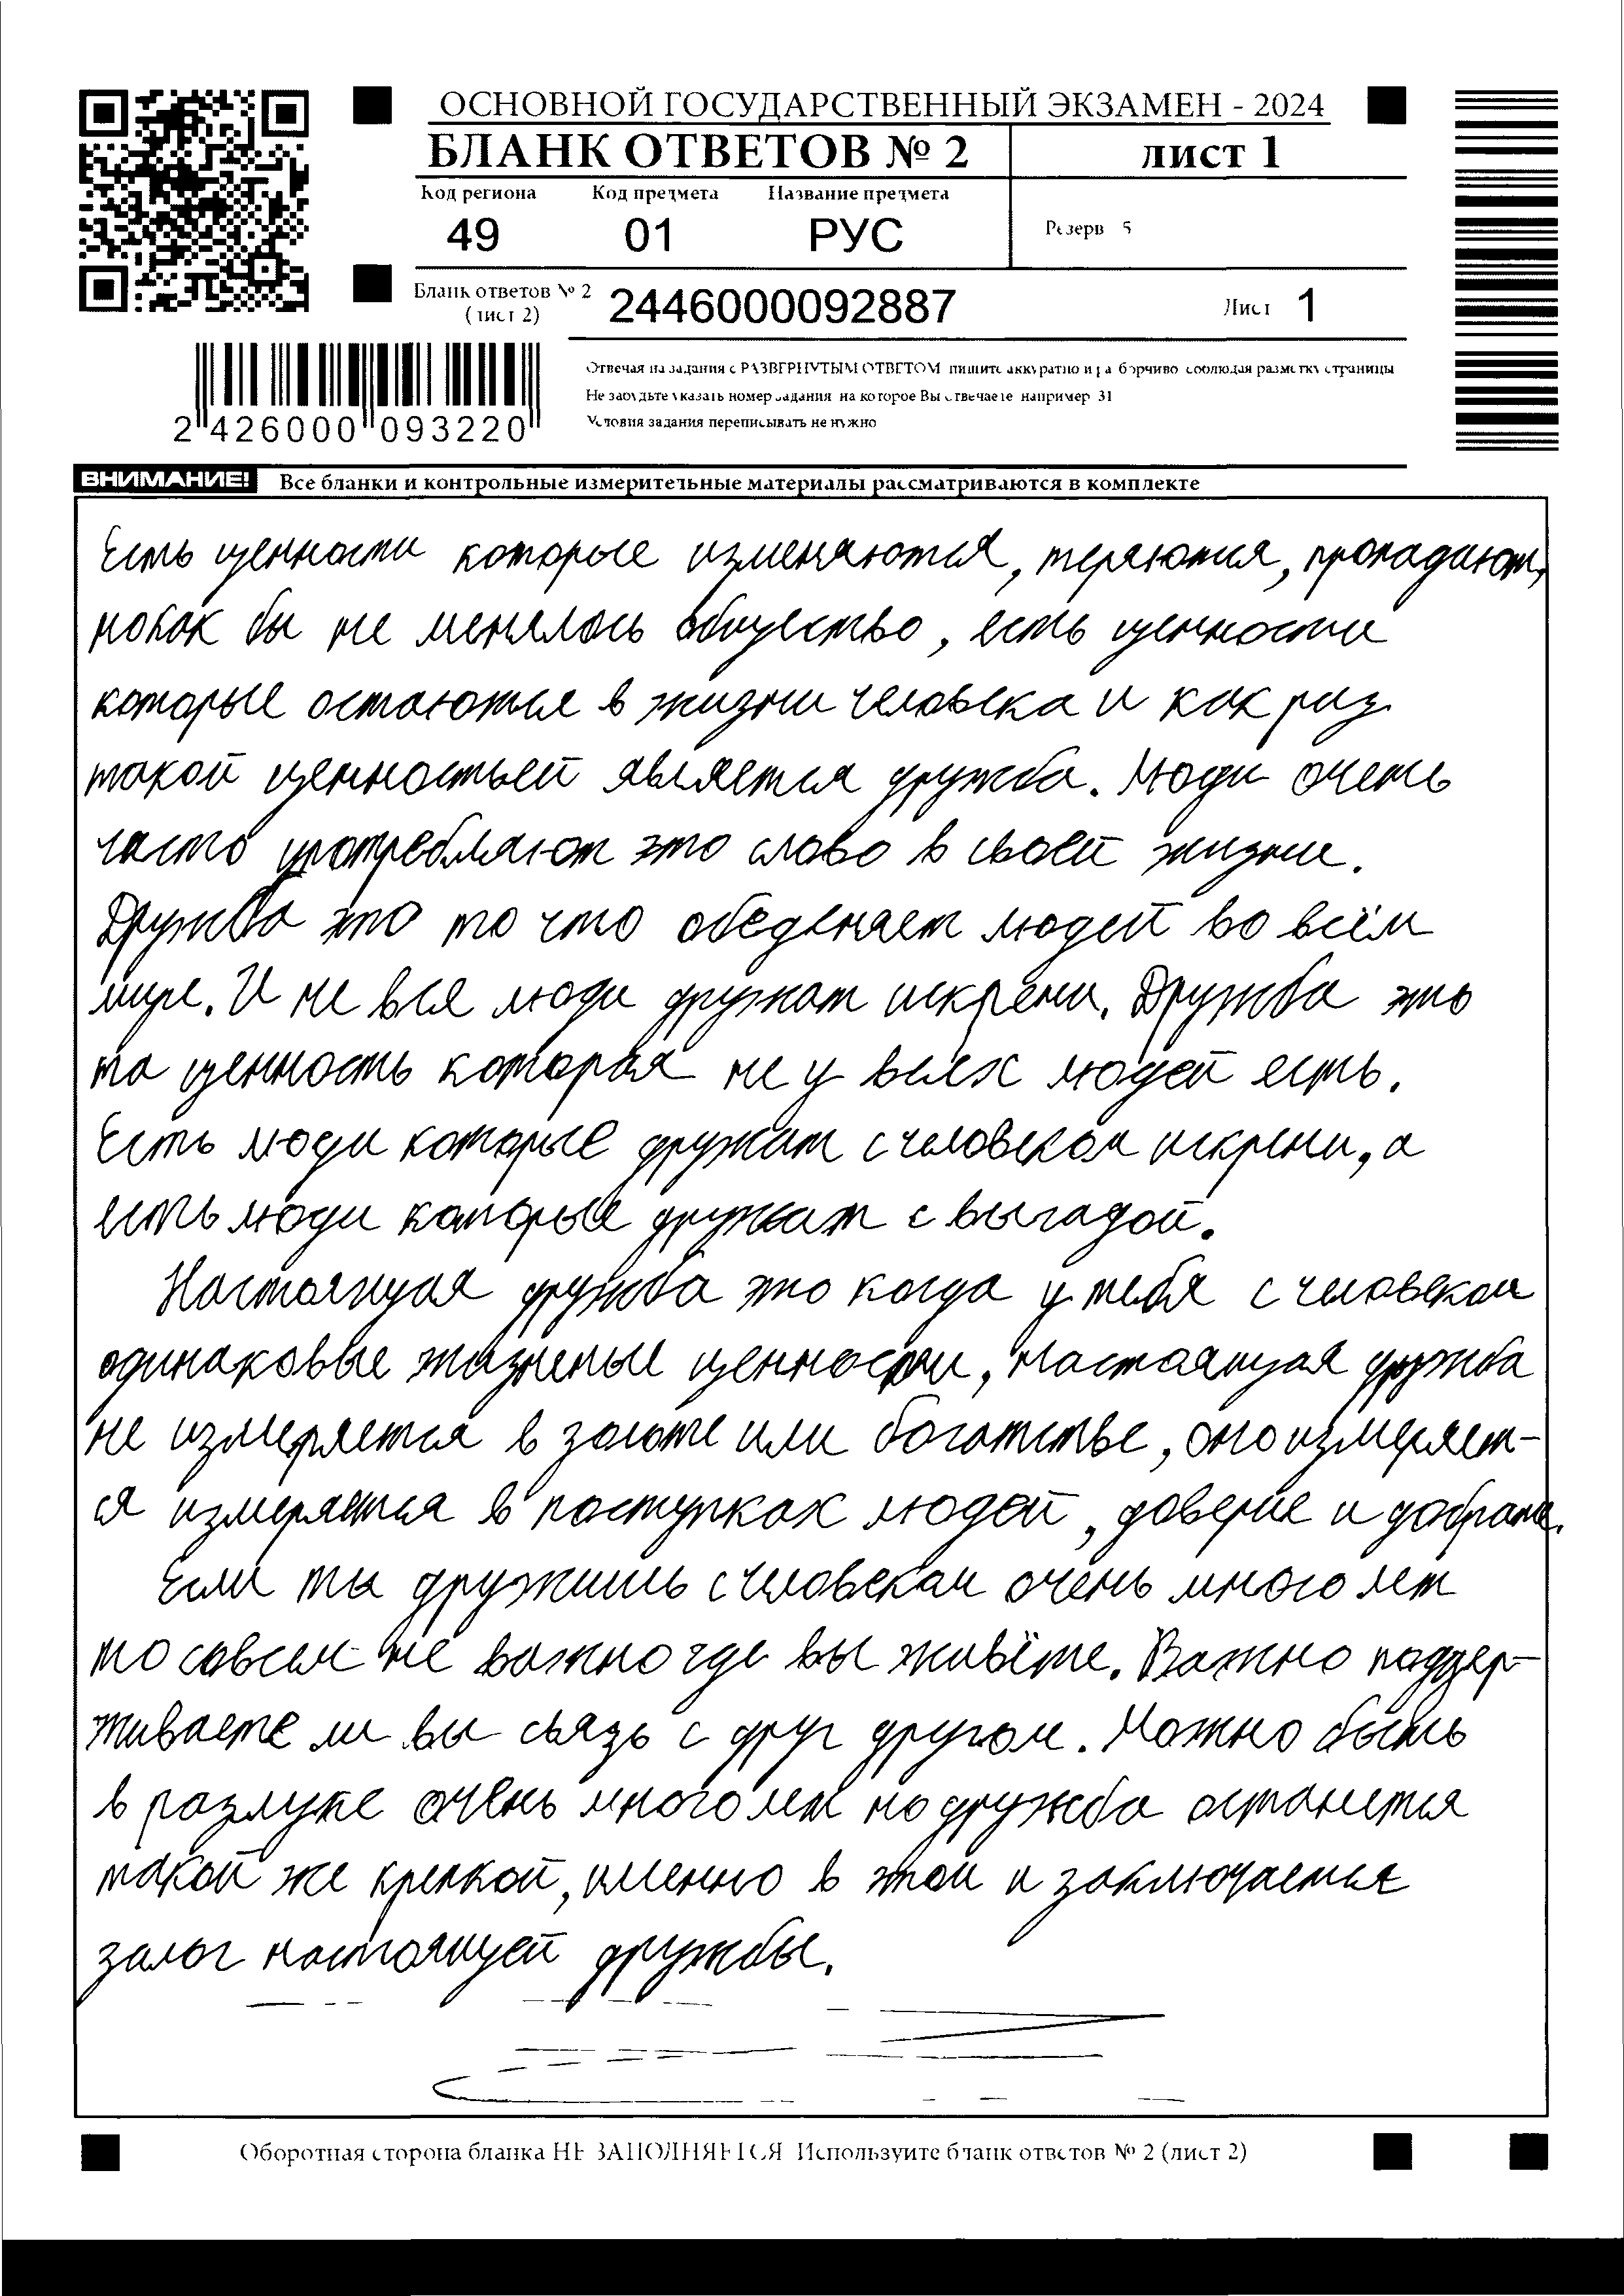 ОСНОВНОЙ ГОСУДАРСТВЕННЫЙ ЭКЗАМЕН - 2024
БЛАНК ОТВЕТОВ № 2
ЛИСТ 1
Код региона Код предмета Название предмета
49 01 РУС
Резерв 5
Бланк ответов № 2
(лист 2)
2446000092887
Лист 1
2 426000 093220
Отвечая на задания с РАЗВЕРНУТЫМ ОТВЕТОМ пишите аккуратно и разборчиво соблюдая разметку страницы
Не забудьте указать номер задания на которое Вы отвечаете например 31
Условия задания переписывать не нужно
ВНИМАНИЕ! Все бланки и контрольные измерительные материалы рассматриваются в комплекте
Есть ценности которые изменяются, теряются, пропадают,
нокак бы не менялось общество, есть ценности
которые остаються в жизни человека и как раз
такой ценностьей является дружба. Люди очень
часто употребляют это слово в своей жизни.
Дружба это то что обеденяет людей во всём
мире. И не все люди дружат искрени. Дружба это
та ценность которая не у всех людей есть.
Есть люди которые дружат с человеком искрени, а
есть люди которые дружат с выгадой.
Настоящая дружба это когда у тебя с человеком
одинаковые жизненые ценности, настоящая дружба
не измеряется в золоте или богатстве, оно измеряет-
ся измеряется в поступках людей, доверие и доброте.
Если ты дружишь с человеком очень много лет
то совсем не важно где вы живёте. Важно поддер-
живаете ли вы связь с друг другом. Можно быть
в разлуке очень много лет но дружба останется
такой же крепкой, именно в этом и заключается
залог настоящей дружбы.
Оборотная сторона бланка НЕ ЗАПОЛНЯЕТСЯ Используйте бланк ответов № 2 (лист 2)